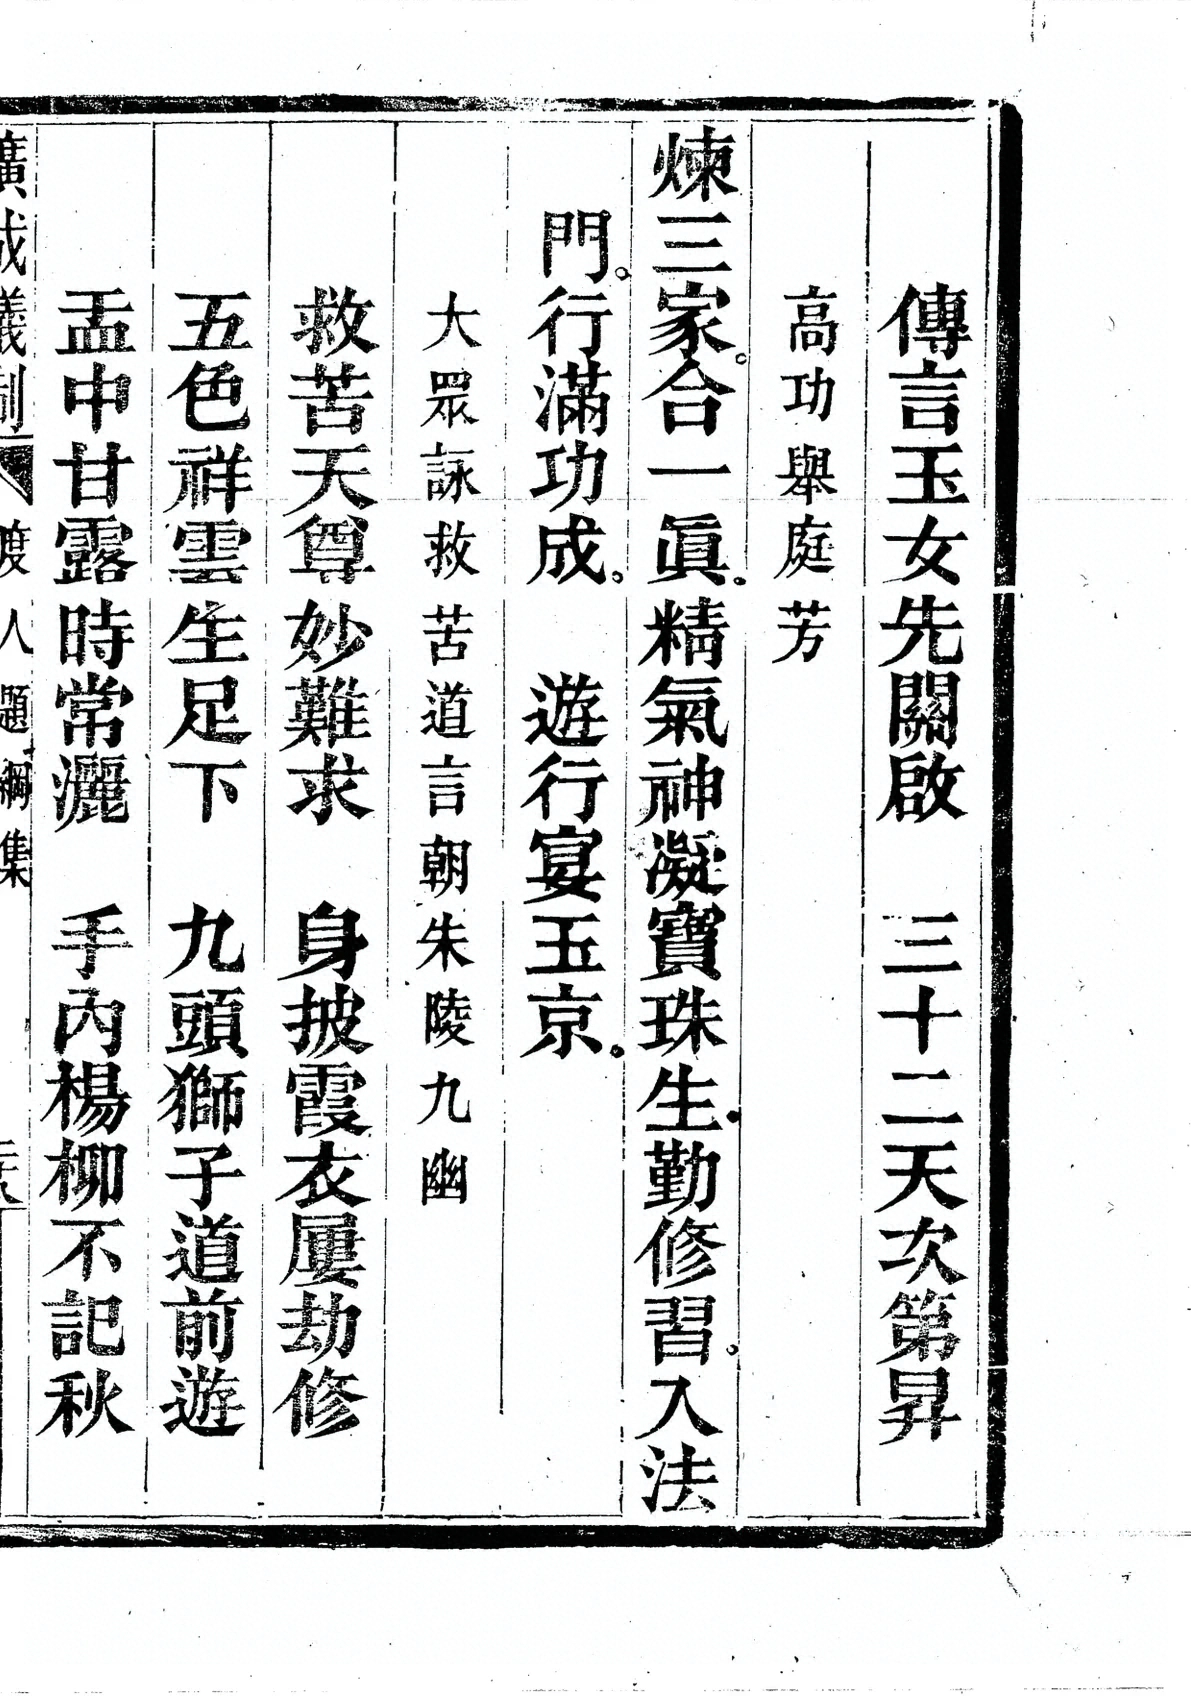 傳言玉女先關啟　三十二天次第昇
高功舉庭芳
煉三家。合一眞。精氣神凝寶珠生。勤修習。入法
門。行滿功成。　遊行宴玉京。
大眾詠救苦道言朝朱陵九幽
救苦天尊妙難求　身披霞衣屢劫修
五色祥雲生足下　九頭獅子道前遊
盂中甘露時常灑　手內楊柳不記秋
廣成儀制　度人題綱集